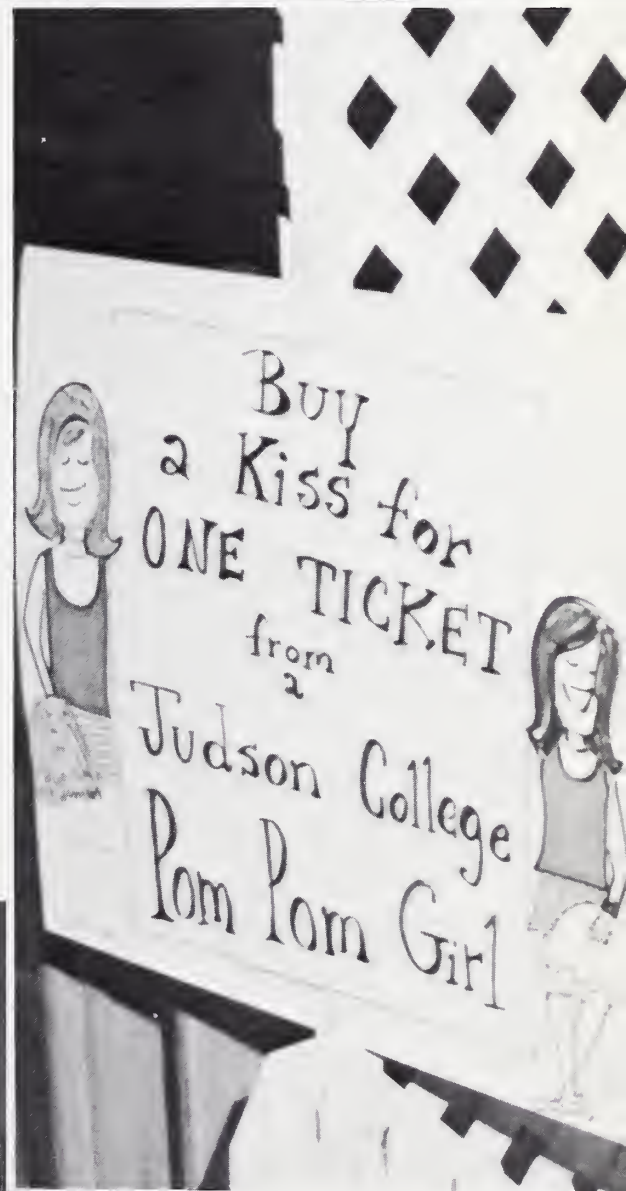 Buy
a Kiss for
ONE TICKET
from
a
Judson College
Pom Pom Girl